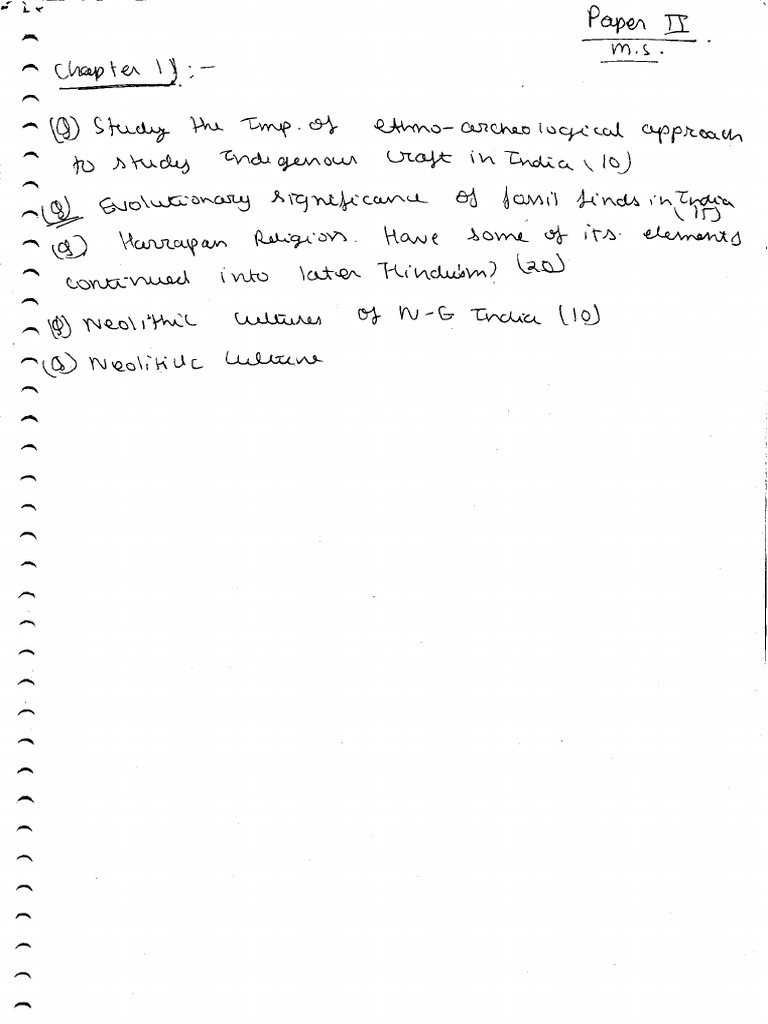 Paper II
M.S.
Chapter 1) :-
(Q) Study the Imp. of ethno-archeological approach
to study Indigenous Craft in India (10)
(Q) Evolutionary significance of fossil finds in India
(15)
(Q) Harrapan Religion. Have some of its elements
continued into later Hinduism? (20)
(Q) Neolithic Cultures of N-E India (10)
(Q) Neolithic Culture